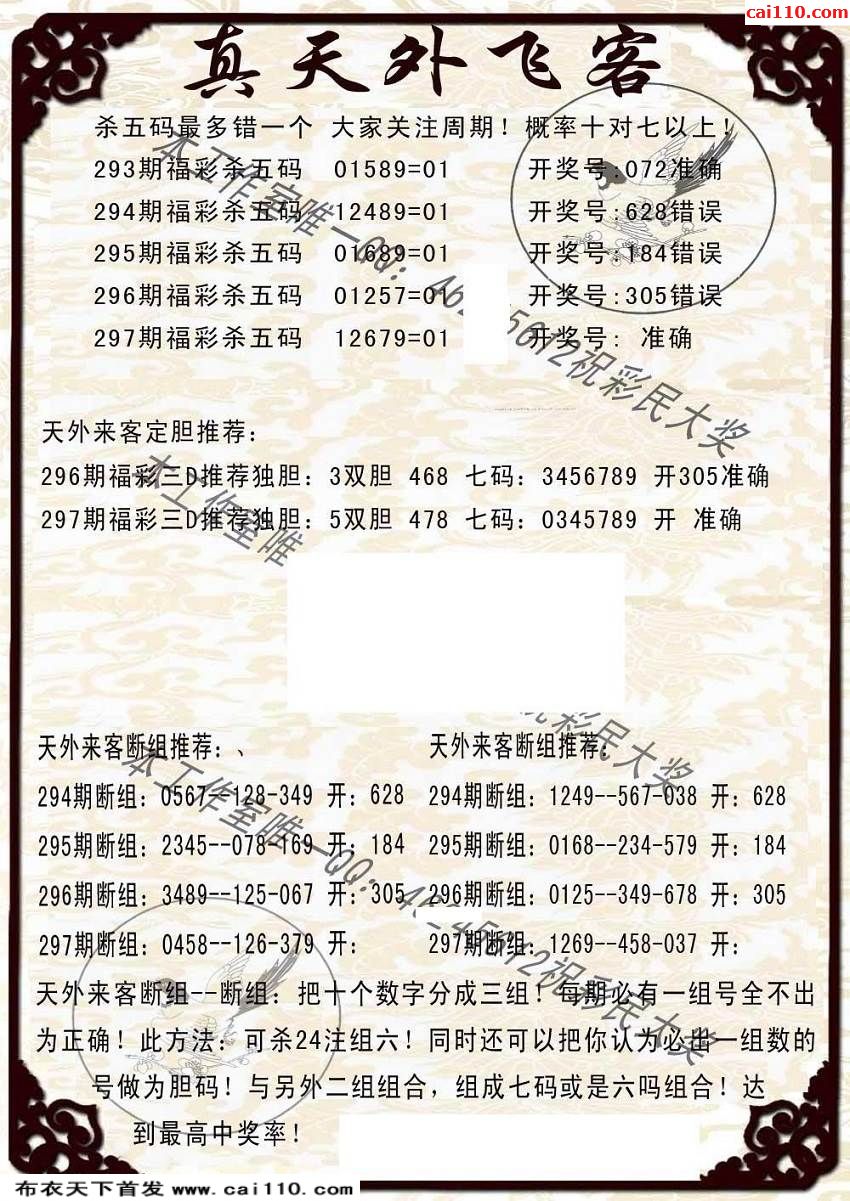 cai110.com
真天外飞客
杀五码最多错一个 大家关注周期！概率十对七以上！
293期福彩杀五码 01589=01 开奖号:072准确
294期福彩杀五码 12489=01 开奖号:628错误
295期福彩杀五码 01689=01 开奖号:184错误
296期福彩杀五码 01257=01 开奖号:305错误
297期福彩杀五码 12679=01 开奖号: 准确
天外来客定胆推荐:
296期福彩三D推荐独胆: 3双胆 468 七码: 3456789 开305准确
297期福彩三D推荐独胆: 5双胆 478 七码: 0345789 开 准确
天外来客断组推荐:、 天外来客断组推荐:
294期断组: 0567--128-349 开: 628 294期断组: 1249--567-038 开: 628
295期断组: 2345--078-169 开: 184 295期断组: 0168--234-579 开: 184
296期断组: 3489--125-067 开: 305 296期断组: 0125--349-678 开: 305
297期断组: 0458--126-379 开: 297期断组: 1269--458-037 开:
天外来客断组--断组: 把十个数字分成三组！每期必有一组号全不出
为正确！此方法: 可杀24注组六！同时还可以把你认为必出一组数的
号做为胆码！与另外二组组合，组成七码或是六吗组合！达
到最高中奖率！
布衣天下首发 www.cai110.com